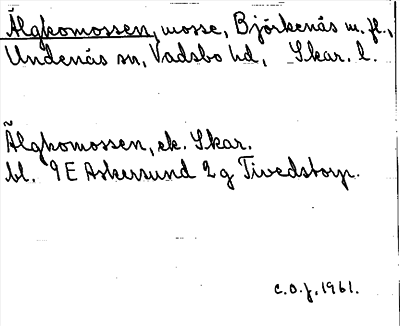 Älgkomossen, mosse, Björkenäs m. fl.,
Undenäs sn, Vadsbo hd, Skar. l.
Älgkomossen, ek. Skar.
bl. 9E Askersund 2g Tivedstorp.
c.o.j. 1961.